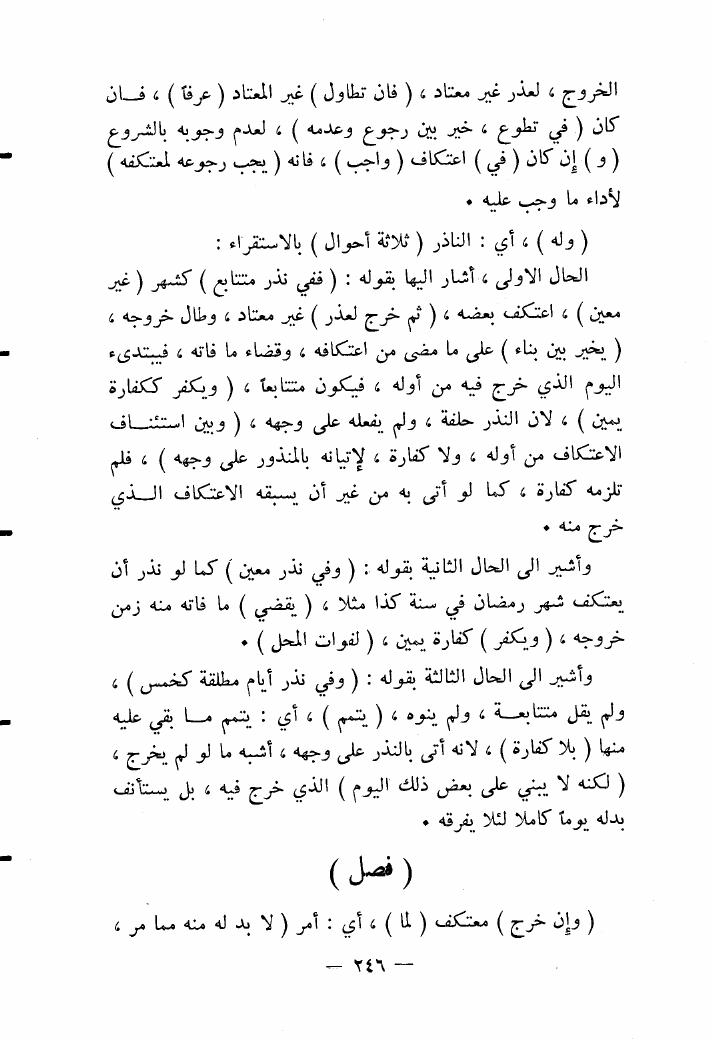 الخروج ، لعذر غير معتاد ، ( فان تطاول ) غير المعتاد ( عرفاً ) ، فـان
كان ( في تطوع ، خير بين رجوع وعدمه ) ، لعدم وجوبه بالشروع
( و ) إن كان ( في ) اعتكاف ( واجب ) ، فانه ( يجب رجوعه لمعتكفه )
لأداء ما وجب عليه .
( وله ) ، أي : الناذر ( ثلاثة أحوال ) بالاستقراء :
الحال الاولى ، أشار اليها بقوله : ( ففي نذر متتابع ) كشهر ( غير
معين ) ، اعتكف بعضه ، ( ثم خرج لعذر ) غير معتاد ، وطال خروجه ،
( يخير بين بناء ) على ما مضى من اعتكافه ، وقضاء ما فاته ، فيبتدىء
اليوم الذي خرج فيه من أوله ، فيكون متتابعاً ، ( ويكفر ككفارة
يمين ) ، لان النذر حلفة ، ولم يفعله على وجهه ، ( وبين استئنـاف
الاعتكاف من أوله ، ولا كفارة ، لإتيانه بالمنذور على وجهه ) ، فلم
تلزمه كفارة ، كما لو أتى به من غير أن يسبقه الاعتكاف الـذي
خرج منه .
وأشير الى الحال الثانية بقوله : ( وفي نذر معين ) كما لو نذر أن
يعتكف شهر رمضان في سنة كذا مثلا ، ( يقضي ) ما فاته منه زمن
خروجه ، ( ويكفر ) كفارة يمين ، ( لفوات المحل ) .
وأشير الى الحال الثالثة بقوله : ( وفي نذر أيام مطلقة كخمس ) ،
ولم يقل متتابعـة ، ولم ينوه ، ( يتمم ) ، أي : يتمم مـا بقي عليه
منها ( بلا كفارة ) ، لانه أتى بالنذر على وجهه ، أشبه ما لو لم يخرج ،
( لكنه لا يبني على بعض ذلك اليوم ) الذي خرج فيه ، بل يستأنف
بدله يوماً كاملا لئلا يفرقه .
( فصل )
( وإن خرج ) معتكف ( لما ) ، أي : أمر ( لا بد له منه مما مر ،
— ٢٤٦ —